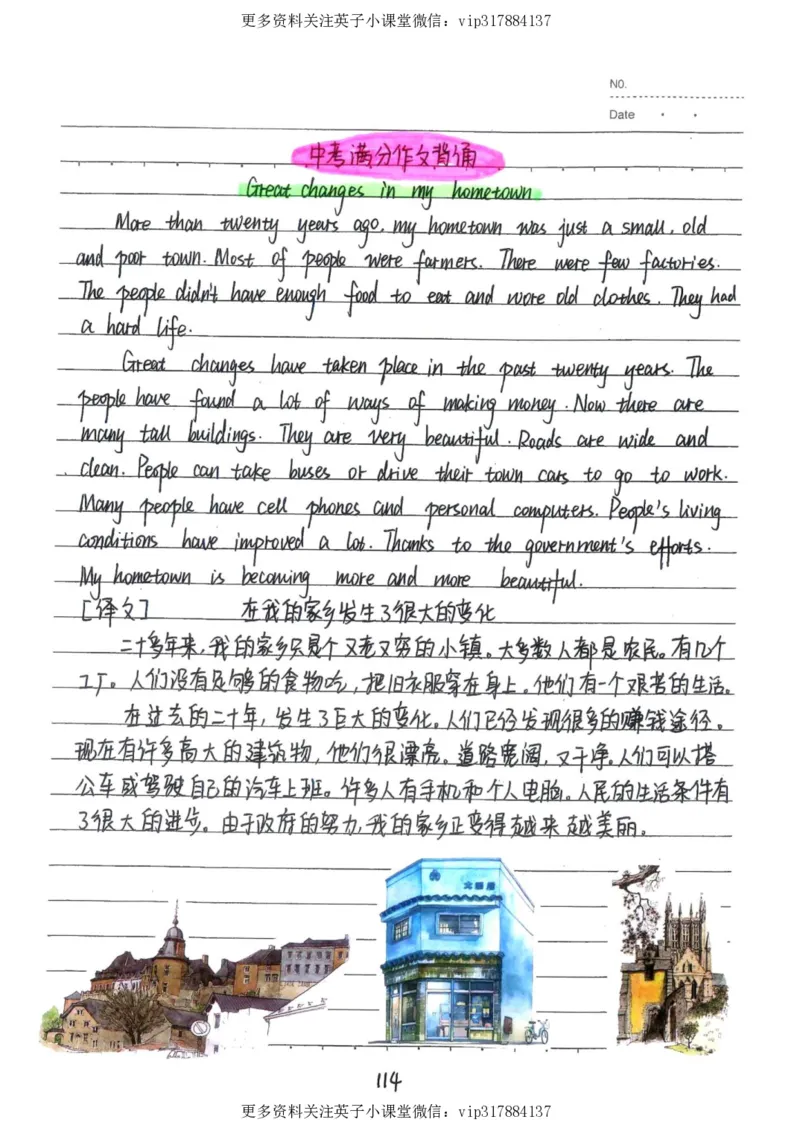 更多资料关注英子小课堂微信：vip317884137
NO.
Date
中考满分作文背诵
Great changes in my hometown
More than twenty years ago, my hometown was just a small, old
and poor town. Most of people were farmers. There were few factories.
The people didn't have enough food to eat and wore old clothes. They had
a hard life.
Great changes have taken place in the past twenty years. The
people have found a lot of ways of making money. Now there are
many tall buildings. They are very beautiful. Roads are wide and
clean. People can take buses or drive their town cars to go to work.
Many people have cell phones and personal computers. People's living
conditions have improved a lot. Thanks to the government's efforts.
My hometown is becoming more and more beautiful.
[译文] 在我的家乡发生了很大的变化
二十多年来,我的家乡只是个又老又穷的小镇。大多数人都是农民。有几个
工厂。人们没有足够的食物吃,把旧衣服穿在身上。他们有一个艰苦的生活。
在过去的二十年,发生了巨大的变化。人们已经发现很多的赚钱途径。
现在有许多高大的建筑物,他们很漂亮。道路宽阔,又干净。人们可以搭
公车或驾驶自己的汽车上班。许多人有手机和个人电脑。人民的生活条件有
了很大的进步。由于政府的努力,我的家乡正变得越来越美丽。
114
更多资料关注英子小课堂微信：vip317884137